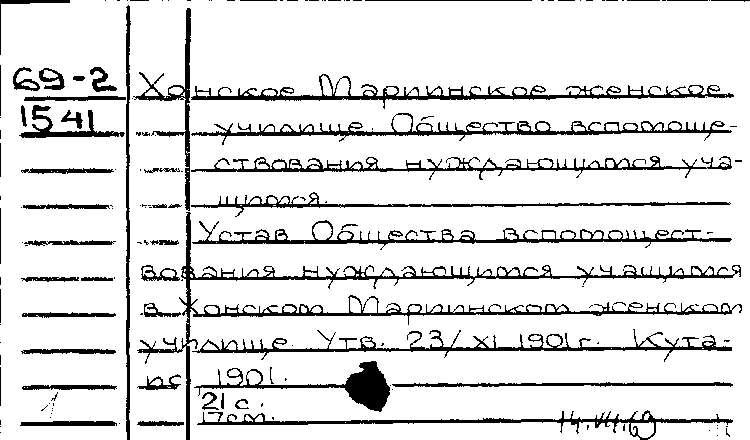 69-2 Хонское Мариинское женское
1541 училище. Общество вспомоще-
ствования нуждающимся уча-
щимся.
Устав Общества вспомощест-
вования нуждающимся учащимся
в Хонском Мариинском женском
училище. Утв. 23/XI 1901 г. Кута-
ис 1901.
21 с.
17 см.
14.VII.69